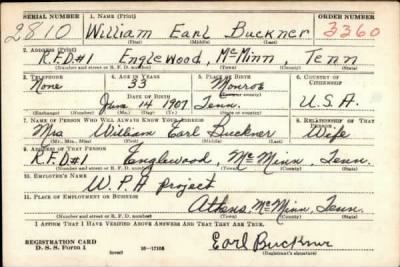 SERIAL NUMBER 1. NAME (Print) ORDER NUMBER
2810 William Earl Buckner 3360
(First) (Middle) (Last)
2. ADDRESS (Print)
R.F.D.#1 Englewood, McMinn, Tenn
(Number and street or R. F. D. number) (Town) (County) (State)
3. TELEPHONE 4. AGE IN YEARS 5. PLACE OF BIRTH 6. COUNTRY OF CITIZENSHIP
None 33 Monroe
DATE OF BIRTH (Town or county)
June 14 1907 Tenn. U.S.A.
(Exchange) (Number) (Mo.) (Day) (Yr.) (State or country)
7. NAME OF PERSON WHO WILL ALWAYS KNOW YOUR ADDRESS 8. RELATIONSHIP OF THAT PERSON
Mrs William Earl Buckner Wife
(Mr., Mrs., Miss) (First) (Middle) (Last)
9. ADDRESS OF THAT PERSON
R.F.D.#1 Englewood, McMinn, Tenn.
(Number and street or R. F. D. number) (Town) (County) (State)
10. EMPLOYER'S NAME
W.P.A project
11. PLACE OF EMPLOYMENT OR BUSINESS
Athens, McMinn, Tenn.
(Number and street or R. F. D. number) (Town) (County) (State)
I AFFIRM THAT I HAVE VERIFIED ABOVE ANSWERS AND THAT THEY ARE TRUE.
Earl Buckner
REGISTRATION CARD
D. S. S. Form 1 (over) 16—17105 (Registrant's signature)